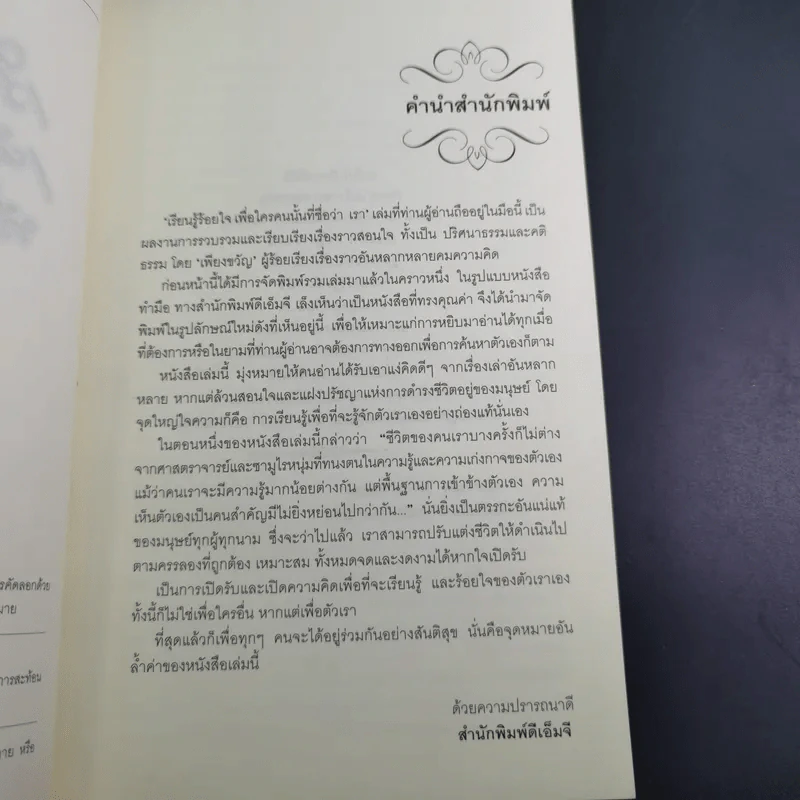 คำนำสำนักพิมพ์
'เรียนรู้ร้อยใจ เพื่อใครคนนั้นที่ชื่อว่า เรา' เล่มที่ท่านผู้อ่านถืออยู่ในมือนี้ เป็น
ผลงานการรวบรวมและเรียบเรียงเรื่องราวสอนใจ ทั้งเป็น ปริศนาธรรมและคติ
ธรรม โดย 'เพียงขวัญ' ผู้ร้อยเรียงเรื่องราวอันหลากหลายคมความคิด
ก่อนหน้านี้ได้มีการจัดพิมพ์รวมเล่มมาแล้วในคราวหนึ่ง ในรูปแบบหนังสือ
ทำมือ ทางสำนักพิมพ์ดีเอ็มจี เล็งเห็นว่าเป็นหนังสือที่ทรงคุณค่า จึงได้นำมาจัด
พิมพ์ในรูปลักษณ์ใหม่ดังที่เห็นอยู่นี้ เพื่อให้เหมาะแก่การหยิบมาอ่านได้ทุกเมื่อ
ที่ต้องการหรือในยามที่ท่านผู้อ่านอาจต้องการทางออกเพื่อการค้นหาตัวเองก็ตาม
หนังสือเล่มนี้ มุ่งหมายให้คนอ่านได้รับเอาแง่คิดดีๆ จากเรื่องเล่าอันหลาก
หลาย หากแต่ล้วนสอนใจและแฝงปรัชญาแห่งการดำรงชีวิตอยู่ของมนุษย์ โดย
จุดใหญ่ใจความก็คือ การเรียนรู้เพื่อที่จะรู้จักตัวเราเองอย่างถ่องแท้นั่นเอง
ในตอนหนึ่งของหนังสือเล่มนี้กล่าวว่า "ชีวิตของคนเราบางครั้งก็ไม่ต่าง
จากศาสตราจารย์และซามูไรหนุ่มที่ทนงตนในความรู้และความเก่งกาจของตัวเอง
แม้ว่าคนเราจะมีความรู้มากน้อยต่างกัน แต่พื้นฐานการเข้าข้างตัวเอง ความ
เห็นตัวเองเป็นคนสำคัญมีไม่ยิ่งหย่อนไปกว่ากัน..." นั่นยิ่งเป็นตรรกะอันแน่แท้
ของมนุษย์ทุกผู้ทุกนาม ซึ่งจะว่าไปแล้ว เราสามารถปรับแต่งชีวิตให้ดำเนินไป
ตามครรลองที่ถูกต้อง เหมาะสม ทั้งหมดจดและงดงามได้หากใจเปิดรับ
เป็นการเปิดรับและเปิดความคิดเพื่อที่จะเรียนรู้ และร้อยใจของตัวเราเอง
ทั้งนี้ก็ไม่ใช่เพื่อใครอื่น หากแต่เพื่อตัวเรา
ที่สุดแล้วก็เพื่อทุกๆ คนจะได้อยู่ร่วมกันอย่างสันติสุข นั่นคือจุดหมายอัน
ล้ำค่าของหนังสือเล่มนี้
ด้วยความปรารถนาดี
สำนักพิมพ์ดีเอ็มจี
รคัดลอกด้วย
มาย
การสะท้อน
หรือ